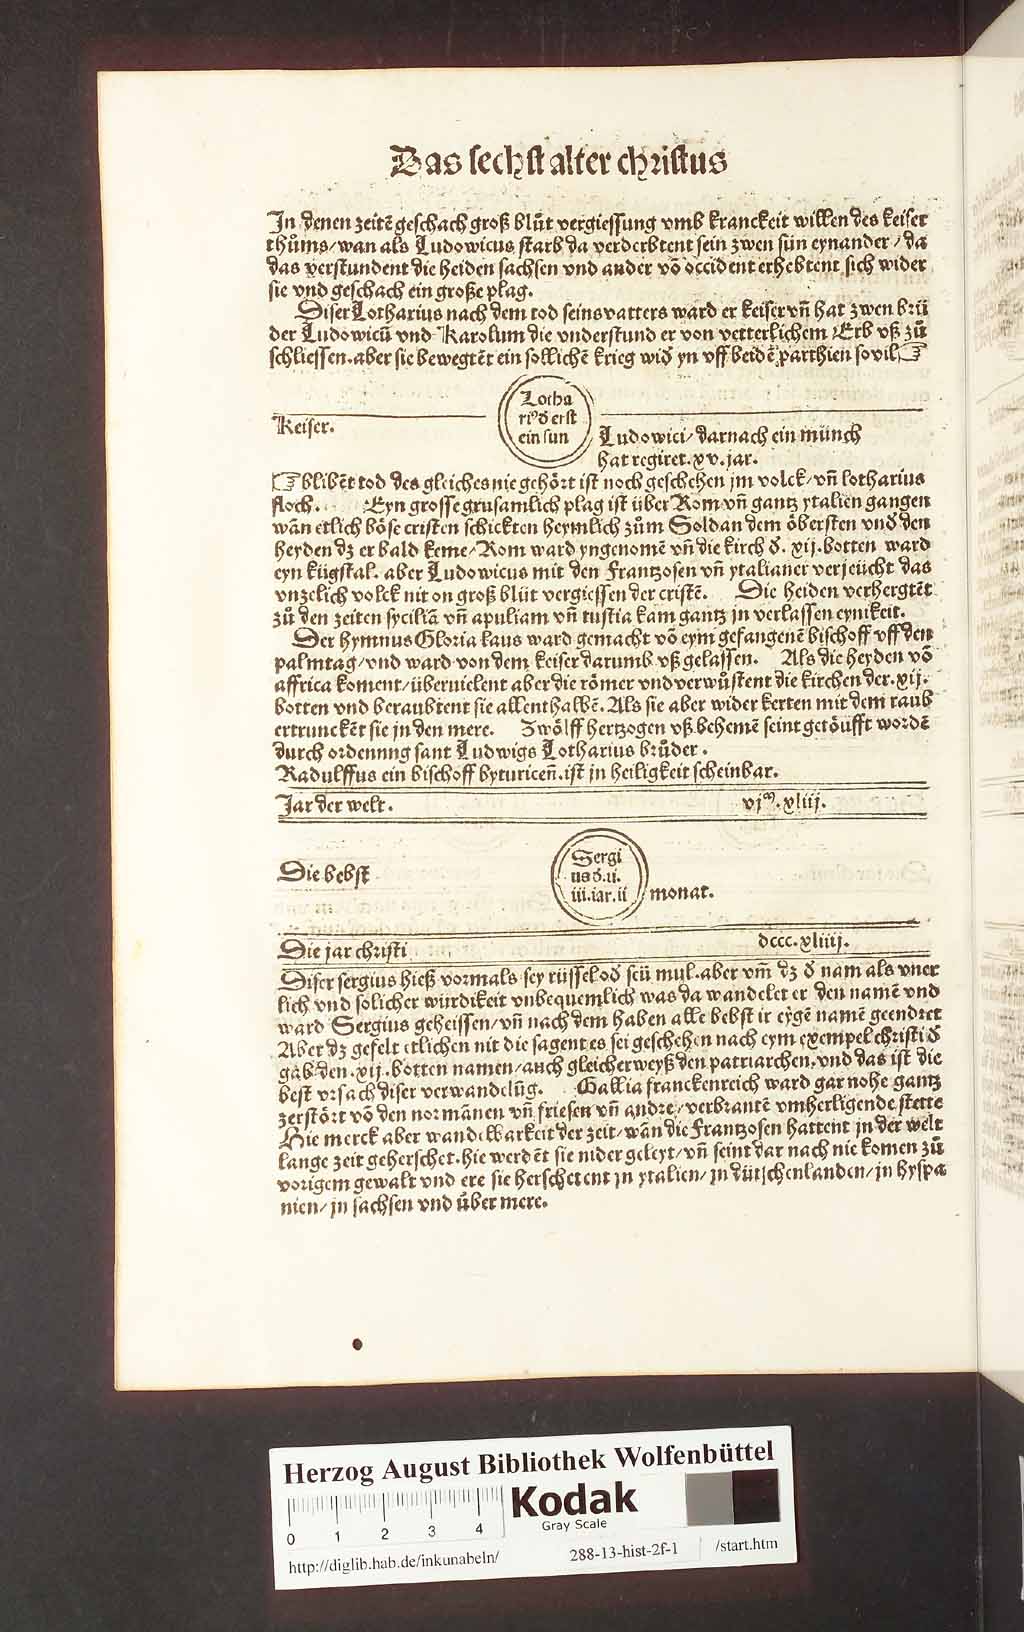 Das sechst alter christus
In denen zeitē geschach groß blůt vergiessung vmb kranckeit willen des keiser
thůms/wan als Ludowicus starb da verderbtent sein zwen sün eynander/da
das verstundent die heiden sachsen vnd ander vō occident erhebtent sich wider
sie vnd geschach ein große plag.
Diser Lotharius nach dem tod seins vatters ward er keiser vn̄ hat zwen brü
der Ludowicū vnd Karolum die vnderstund er von vetterlichem Erb vß zů
schliessen.aber sie bewegtēt ein sollichē krieg wid̄ yn vff beidē parthien sovil☞
Lotha
riꝰ d̄ erst
ein sun
Keiser.
Ludowici/darnach ein münch
hat regiret.xv.jar.
☞blibēt tod des gleiches nie gehȯrt ist noch geschehen jm volck/vn̄ lotharius
floch. Eyn grosse grusamlich plag ist über Rom vn̄ gantz ytalien gangen
wān etlich böse cristen schickten heymlich zům Soldan dem öbersten vnd̄ den
heyden dz er bald keme/Rom ward yngenomē vn̄ die kirch d̄.xij.botten ward
eyn küg̈stal.aber Ludowicus mit den Frantzosen vn̄ ytalianer verjeücht das
vnzelich volck nit on groß blůt vergiessen der cristē. Die heiden verhergtēt
zů den zeiten syciliā vn̄ apuliam vn̄ tustia kam gantz jn verlassen eynikeit.
Der hymnus Gloria laus ward gemacht vō eym gefangenē bischoff vff den
palmtag/vnd ward von dem keiser darumb vß gelassen. Als die heyden vō
affrica koment/überuielent aber die römer vnd verwůstent die kirchen der.xij.
botten vnd beraubtent sie allenthalbē.Als sie aber wider kerten mit dem raub
ertrunckēt sie jn den mere. Zwölff hertzogen vß behemē seint getöufft wordē
durch ordennng sant Ludwigs Lotharius brůder.
Radulffus ein bischoff byturicen̄.ist jn heiligkeit scheinbar.
Jar der welt. vjᵐ.xliij.
Die bebst
Sergi
us d̄.ii.
iii.iar.ii
monat.
Die jar christi dccc.xliiij.
Diser sergius hieß vormals sey rüssel od̄ seü mul.aber vm̄ dz d̄ nam als vner
lich vnd solicher wirdikeit vnbequemlich was da wandelet er den namē vnd
ward Sergius geheissen/vn̄ nach dem haben alle bebst ir eygē namē geendret
Aber dz gefelt etlichen nit die sagent es sei geschehen nach eym exempel christi d̄
gab den.xij.botten namen/auch gleicherweyß den patriarchen.vnd das ist die
best vrsach diser verwandelūg. Gallia franckenreich ward gar nohe gantz
zerstȯrt vō den normānen vn̄ friesen vn̄ andre/verbrantē vmherligende stette
Hie merck aber wandelbarkeit der zeit/wān die Frantzosen hattent jn der welt
lange zeit geherschet.hie werdēt sie nider geleyt/vn̄ seint dar nach nie komen zů
vorigem gewalt vnd ere sie herschetent jn ytalien/jn tütschenlanden/jn hyspa
nien/jn sachsen vnd über mere.
Herzog August Bibliothek Wolfenbüttel
0 1 2 3 4
Kodak
Gray Scale
http://diglib.hab.de/inkunabeln/ 288-13-hist-2f-1 /start.htm